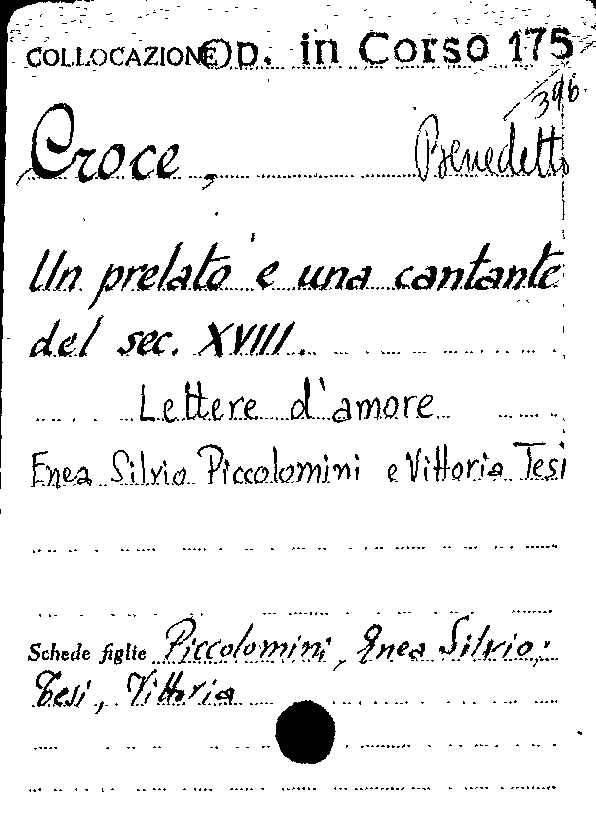 COLLOCAZIONE Op. in Corso 175
396.
Croce, Benedetto
Un prelato e una cantante
del sec. XVIII.
Lettere d'amore
Enea Silvio Piccolomini e Vittoria Tesi
Schede figlie Piccolomini, Enea Silvio;
Tesi, Vittoria